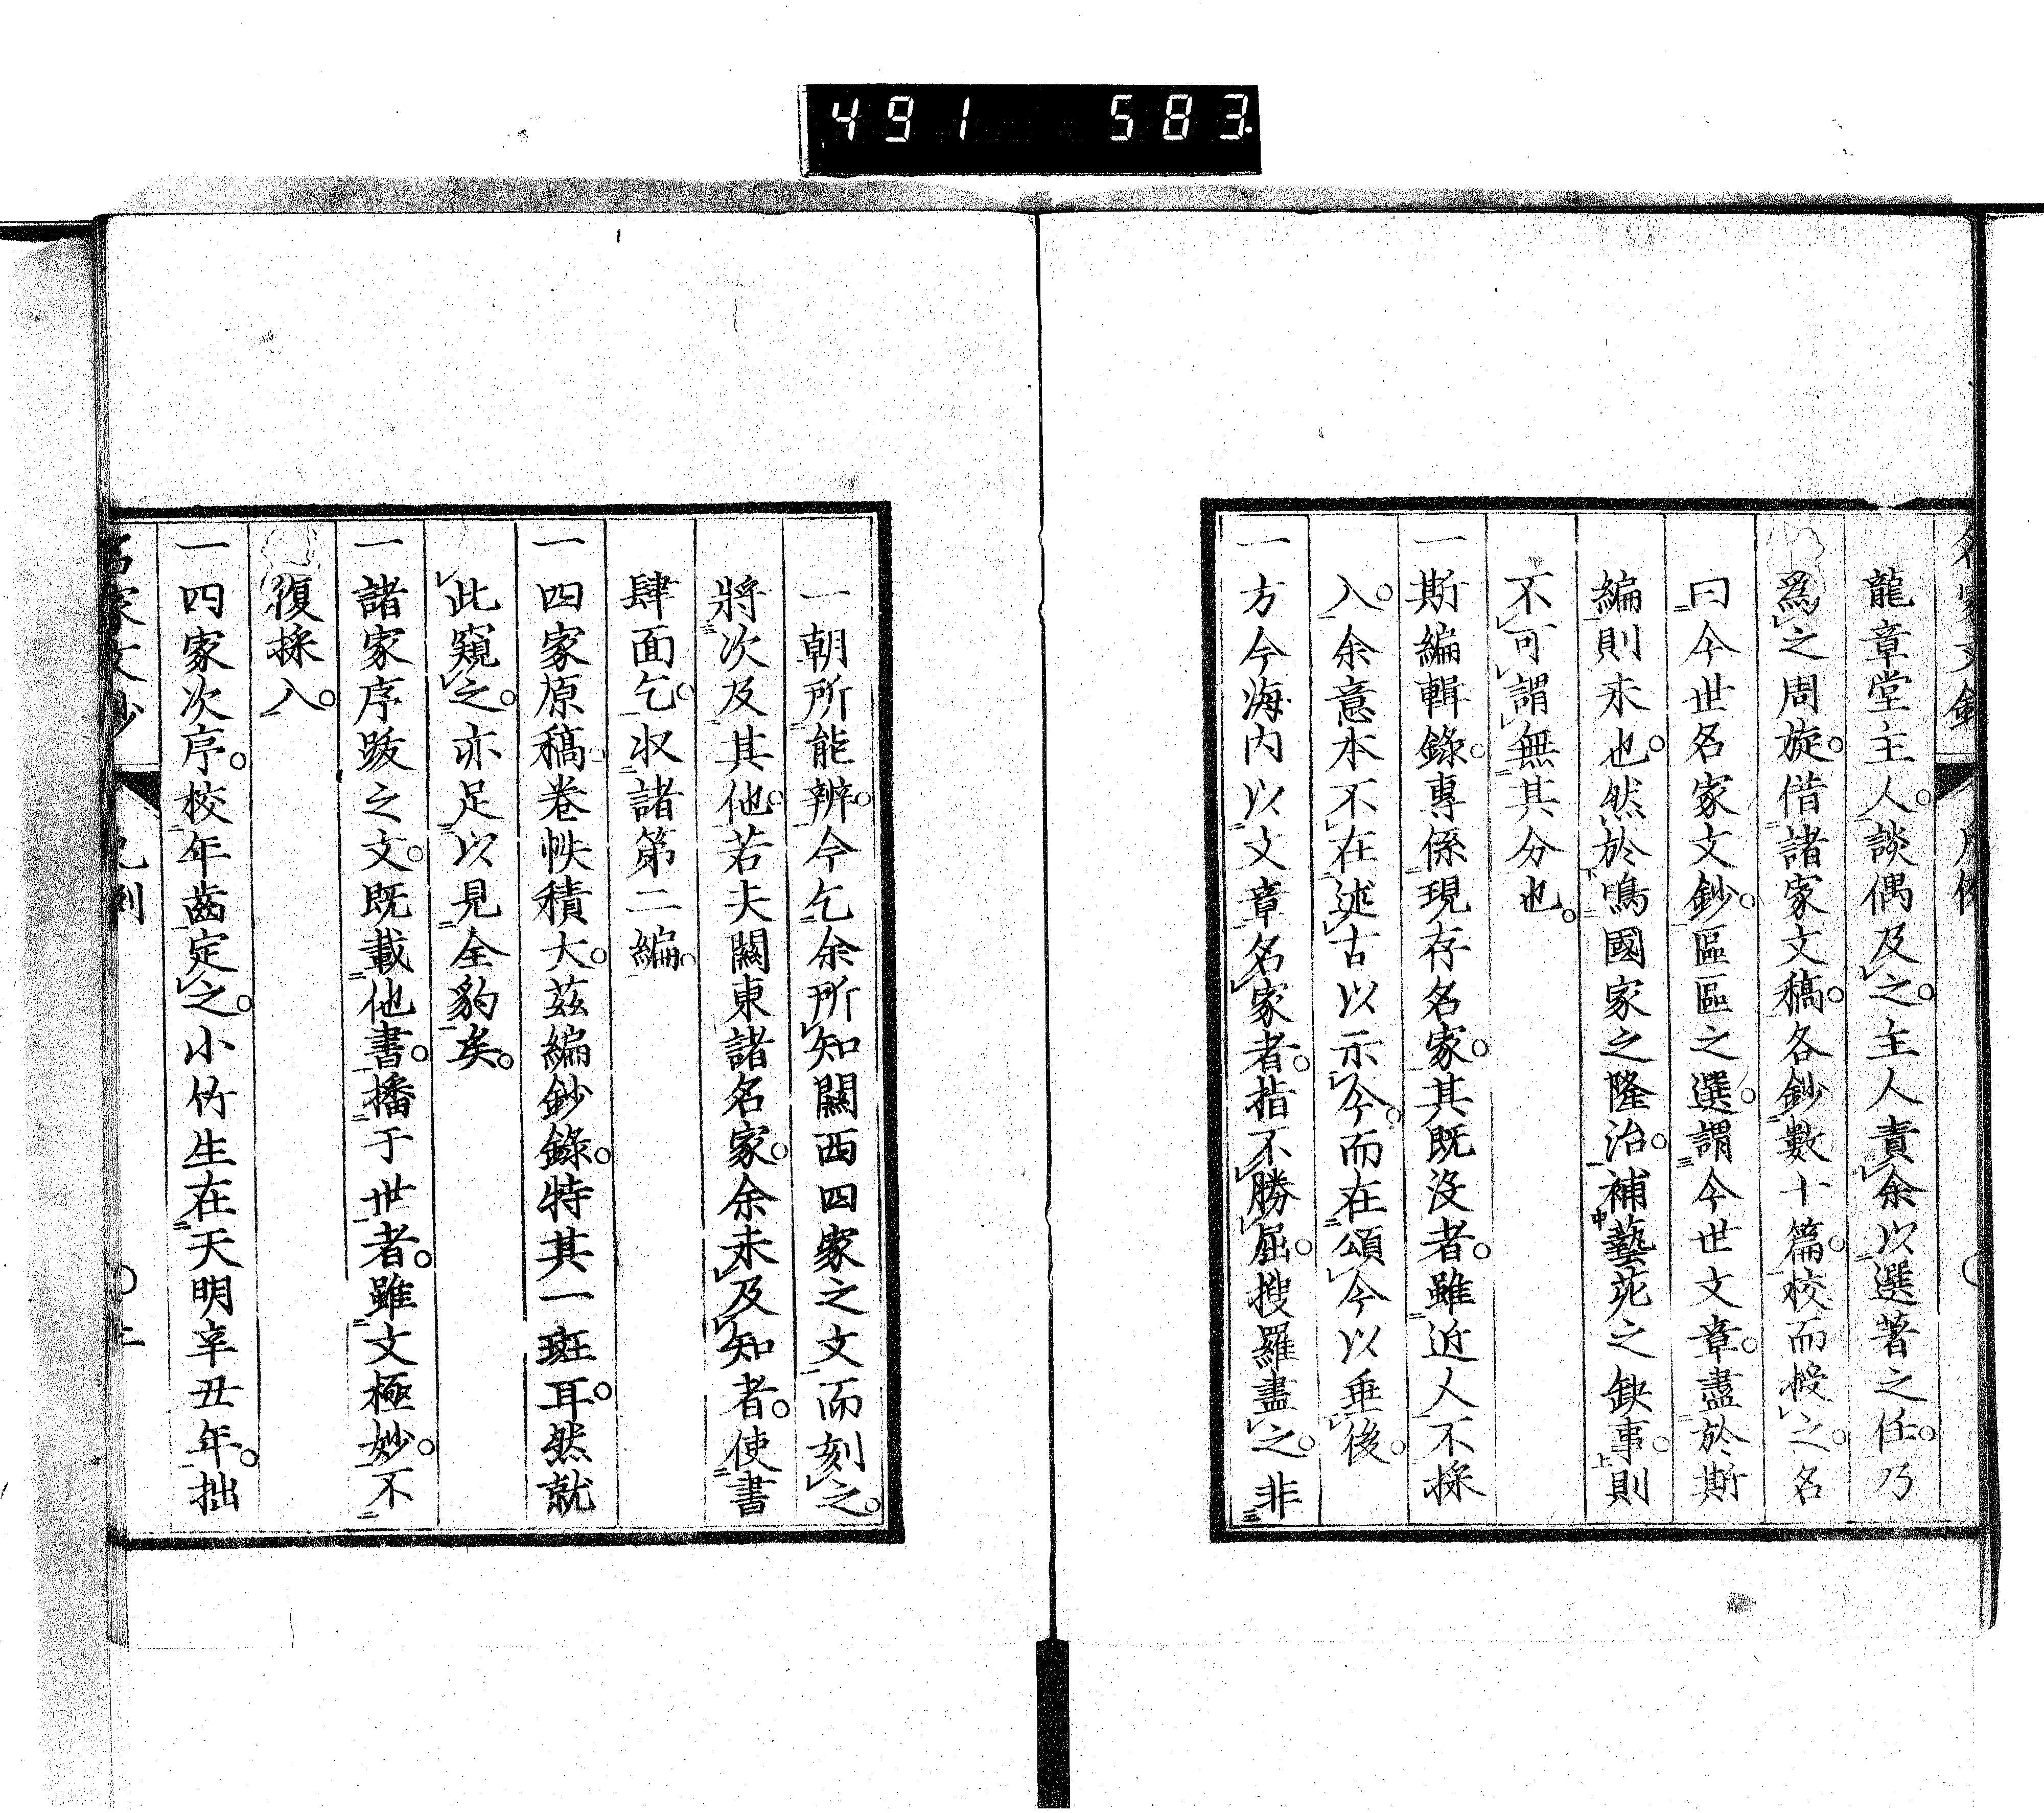 491 583.
龍章堂主人。談偶及之。主人責余以選著之任。乃
爲之周旋。借諸家文稿。各鈔數十篇。校而授之。名
曰今世名家文鈔。區區之選。謂今世文章。盡於斯
編則未也。然於鳴國家之隆治。補藝苑之缺事。則
不可謂無其分也。
一斯編輯錄。專係現存名家。其既沒者。雖近人不採
入。余意本不在述古以示今。而在頌今以垂後。
一方今海内以文章名家者。指不勝屈。搜羅盡之。非
一朝所能辨。今乞余所知關西四家之文而刻之。
將次及其他。若夫關東諸名家。余未及知者。使書
肆面乞。收諸第二編。
一四家原稿。卷帙積大。茲編鈔錄。特其一斑耳。然就
此窺之。亦足以見全豹矣。
一諸家序跋之文。既載他書。播于世者。雖文極妙。不
復採入。
一四家次序。校年齒定之。小竹生在天明辛丑年。拙
名家文鈔 凡例 二